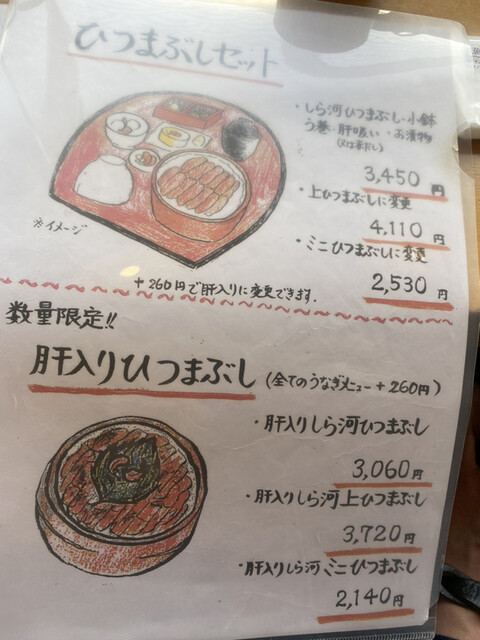 ひつまぶしセット
・しら河ひつまぶし・小鉢
う巻・肝吸い・お漬物
(又は赤だし)
3,450円
・上ひつまぶしに変更
4,110円
・ミニひつまぶしに変更
2,530円
※イメージ
+260円で肝入りに変更できます.
数量限定!!
肝入りひつまぶし(全てのうなぎメニュー+260円)
・肝入りしら河ひつまぶし
3,060円
・肝入りしら河上ひつまぶし
3,720円
・肝入りしら河ミニひつまぶし
2,140円